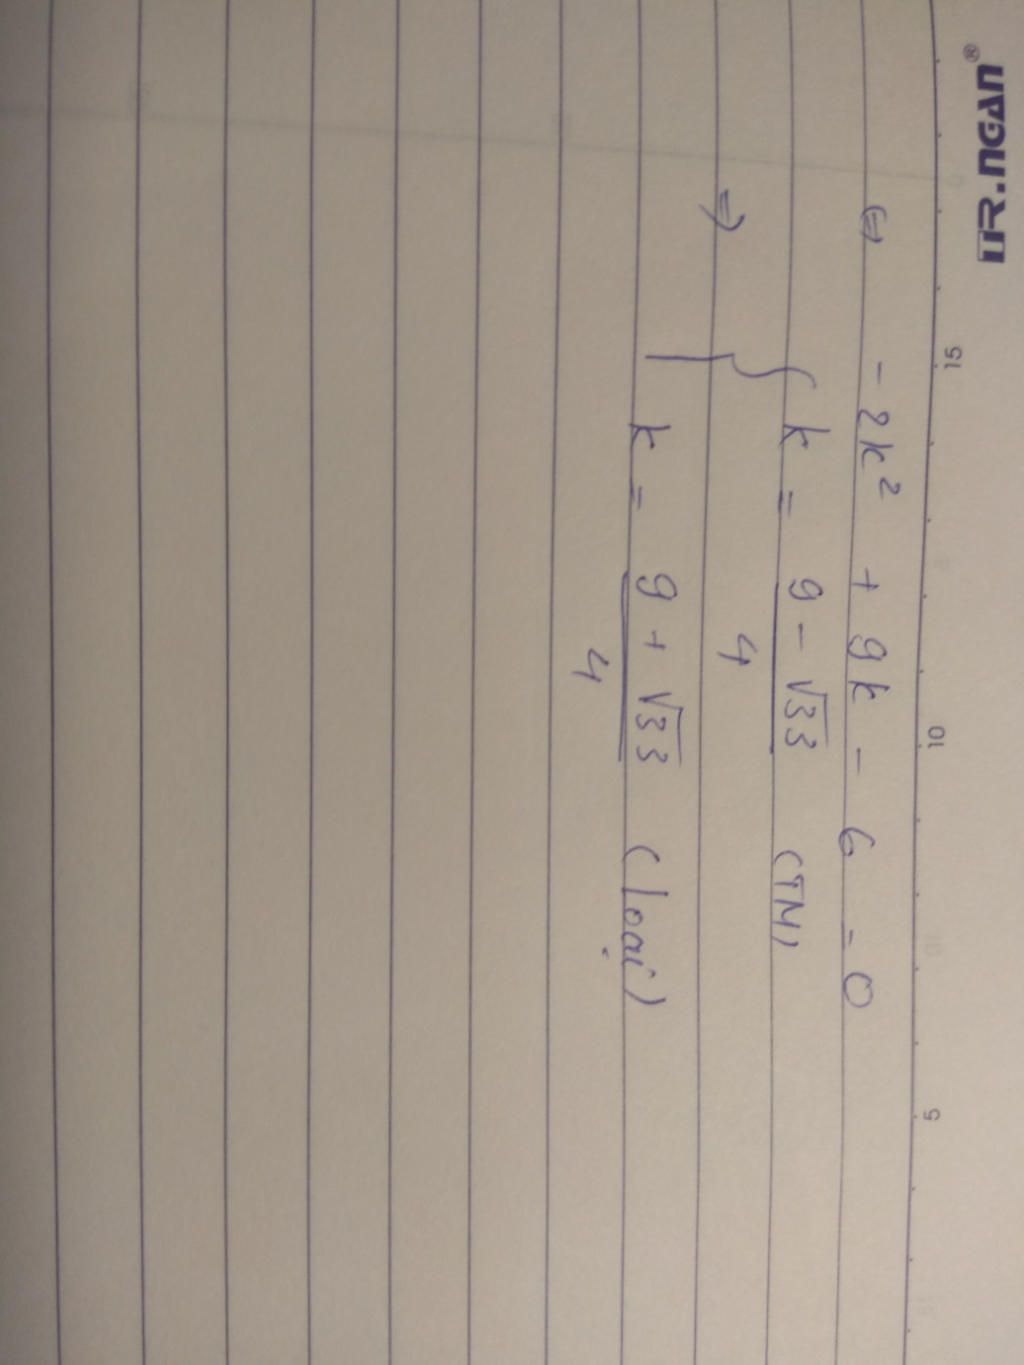 TR.NGAN®
15 10 5
⇔ - 2k² + 9k - 6 = 0
⇒ { k = (9 - √33)/4 (TM)
k = (9 + √33)/4 (loại)